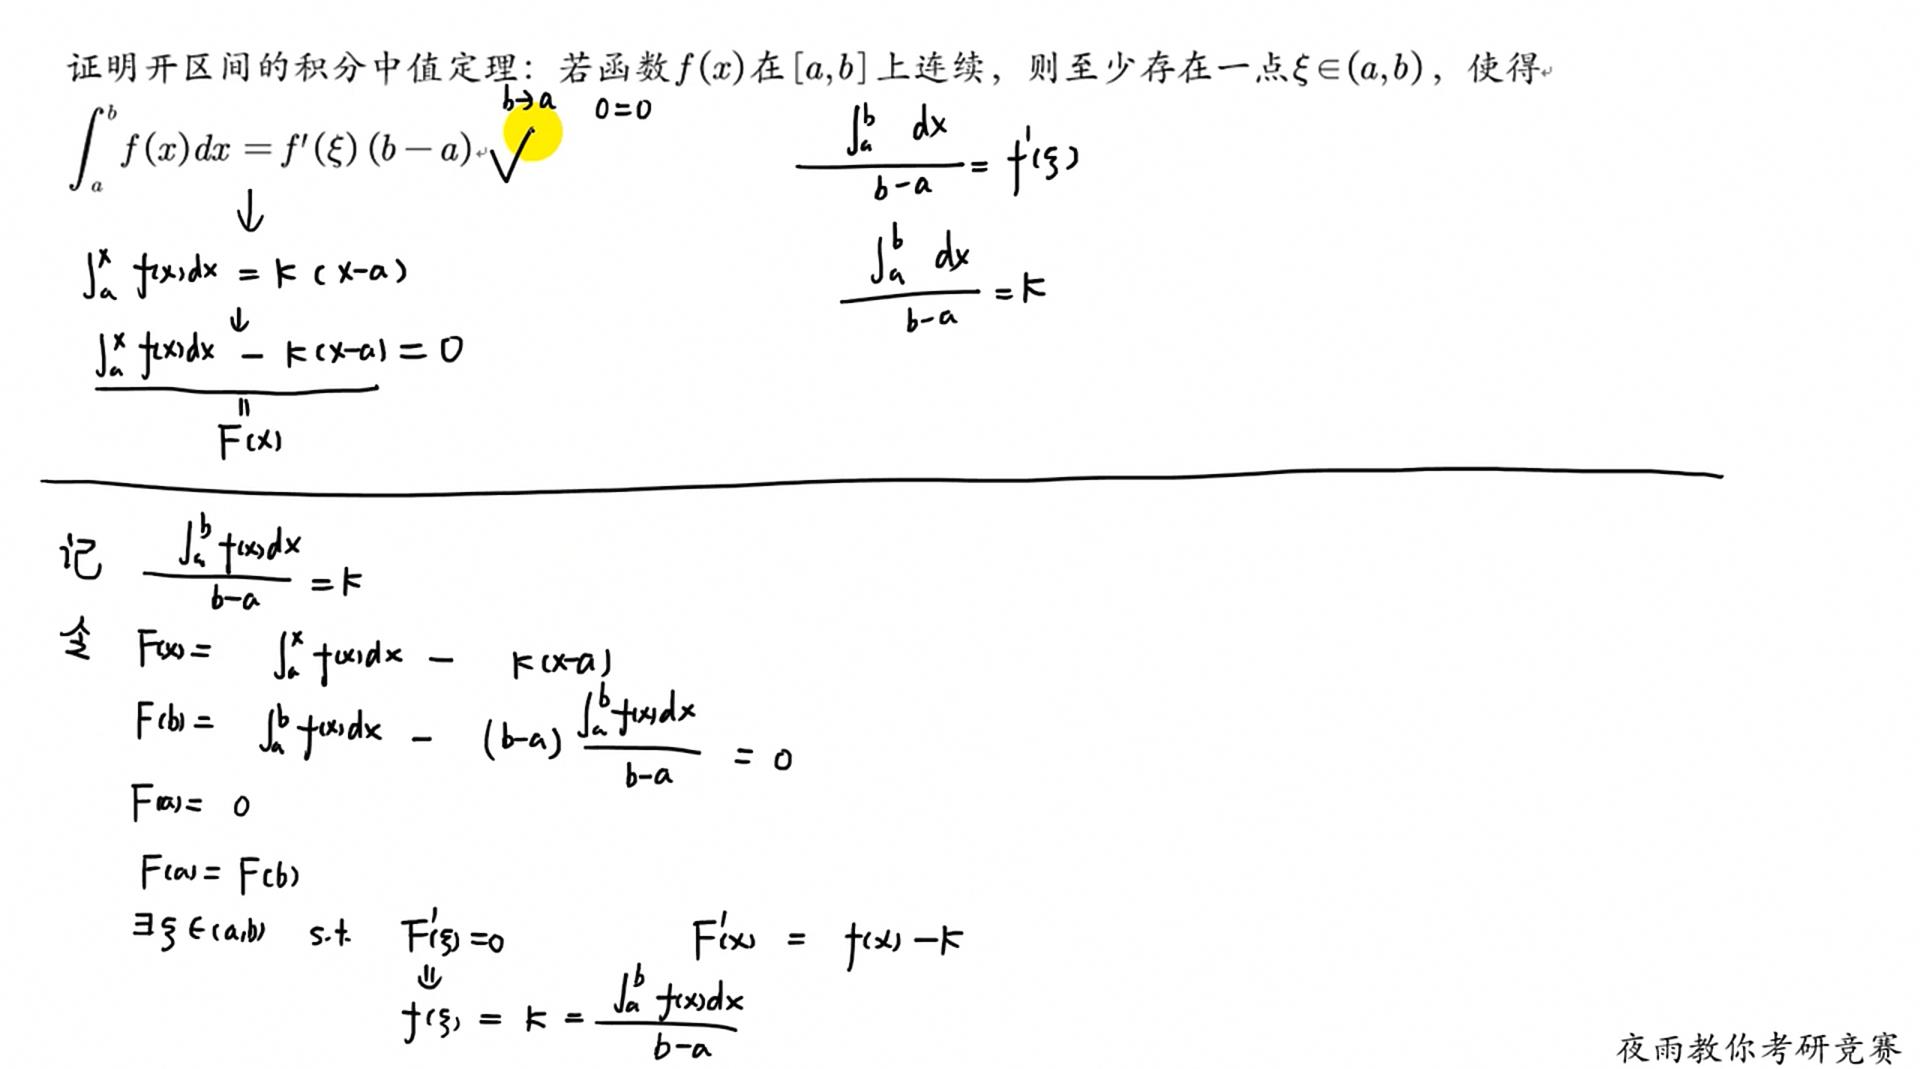 证明开区间的积分中值定理：若函数f(x)在[a,b]上连续，则至少存在一点ξ∈(a,b)，使得
∫_a^b f(x)dx = f′(ξ)(b−a)
b→a 0=0
√
↓
∫_a^x f(x)dx = k(x-a)
↓
∫_a^x f(x)dx − k(x-a) = 0
॥
F(x)
∫_a^b dx / b-a = f′(ξ)
∫_a^b dx / b-a = k
记 ∫_a^b f(x)dx / b-a = k
令 F(x) = ∫_a^x f(x)dx − k(x-a)
F(b) = ∫_a^b f(x)dx − (b-a) ∫_a^b f(x)dx / b-a = 0
F(a) = 0
F(a) = F(b)
∃ξ∈(a,b) s.t. F′(ξ)=0 F′(x) = f(x)-k
⇓
f(ξ) = k = ∫_a^b f(x)dx / b-a
夜雨教你考研竞赛